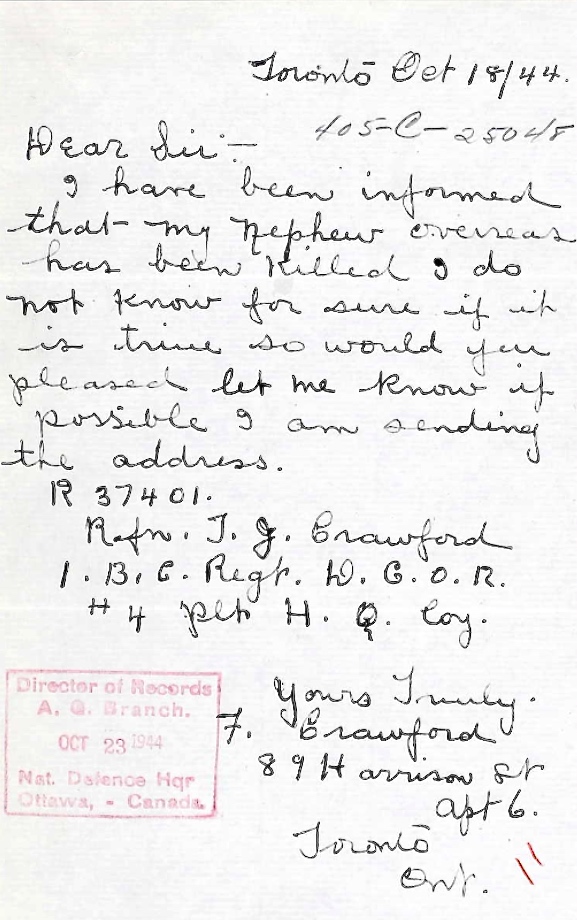 Toronto Oct 18/44.
405-C-25048
Dear Sir:-
I have been informed
that my Nephew overseas
has been Killed I do
not know for sure if it
is true so would you
pleased let me know if
possible I am sending
the address.
R 37401.
Rfn. T. J. Crawford
1. B. C. Regt. D. C. O. R.
# 4 plt H. Q. Coy.
Yours Truly.
F. Crawford
89 Harrison St
Apt 6.
Toronto
Ont.
Director of Records
A. G. Branch.
OCT 23 1944
Nat. Defence Hqr
Ottawa, - Canada.